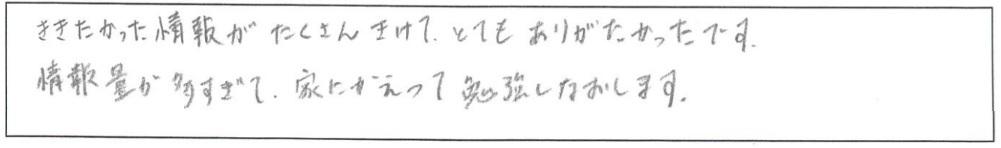 ききたかった情報がたくさんきけて、とてもありがたかったです。
情報量が多すぎて、家にかえって勉強しなおします。